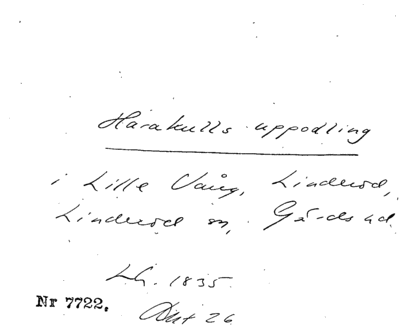 Harakulls uppodling
i Lille Vång, Linderöd,
Linderöd sn, Gärds hd.
Lh. 1835
Nr 7722. Akt 26